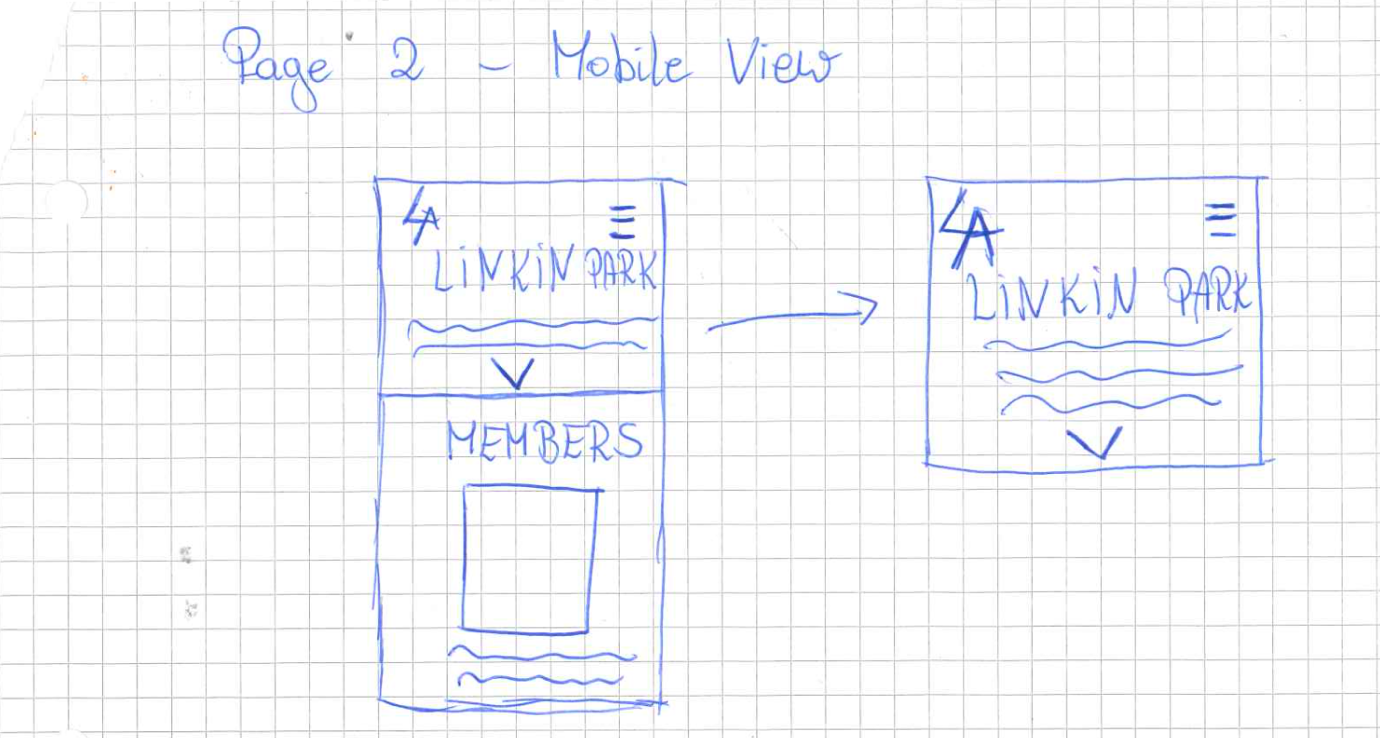 Page 2 - Mobile View
LiNKiN PARK
MEMBERS
LiNKiN PARK